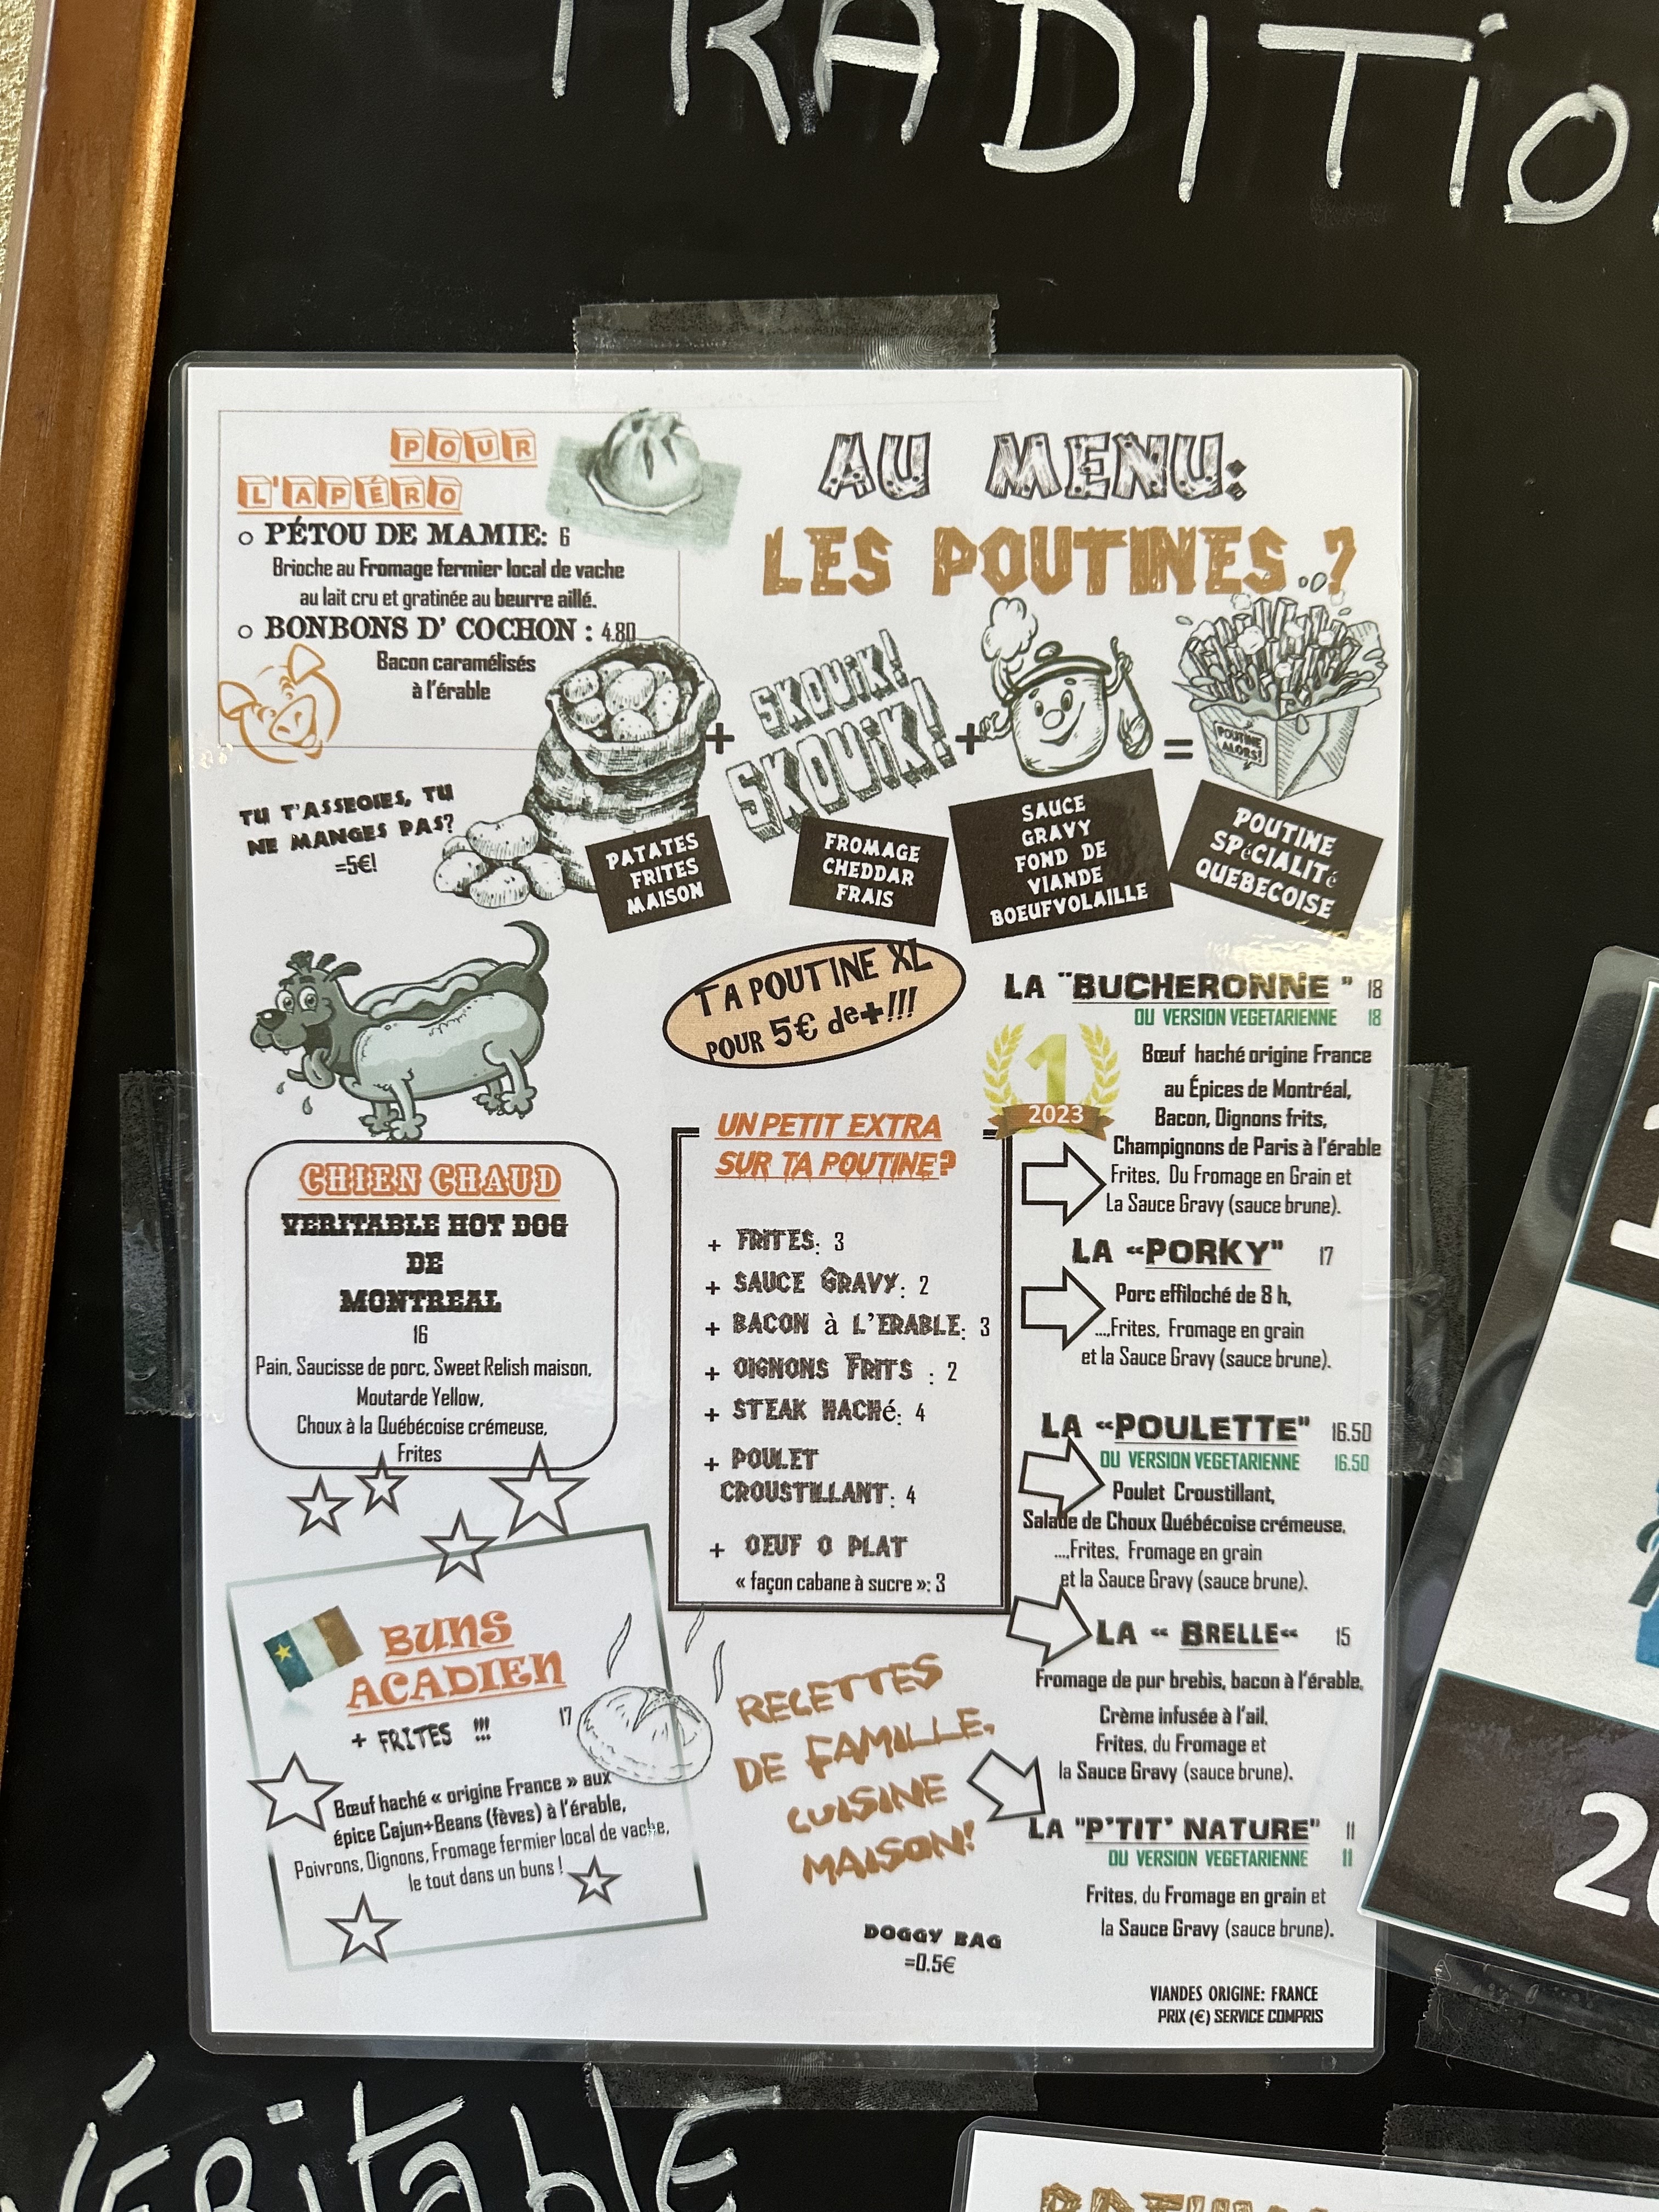 TRADITIO
POUR
L'APÉRO
o PÉTOU DE MAMIE: 6
Brioche au Fromage fermier local de vache
au lait cru et gratinée au beurre aillé.
o BONBONS D' COCHON : 4.80
Bacon caramélisés
à l'érable
AU MENU:
LES POUTINES..?
SKOUIK!
SKOUIK!
+
+
=
POUTINE
ALORS!
TU T'ASSEOIES, TU
NE MANGES PAS?
=5€!
PATATES
FRITES
MAISON
FROMAGE
CHEDDAR
FRAIS
SAUCE
GRAVY
FOND DE
VIANDE
BOEUFVOLAILLE
POUTINE
SPéCIALITé
QUEBECOISE
TA POUTINE XL
POUR 5€ de+!!!
CHIEN CHAUD
VERITABLE HOT DOG
DE
MONTREAL
16
Pain, Saucisse de porc, Sweet Relish maison,
Moutarde Yellow,
Choux à la Québécoise crémeuse,
Frites
BUNS
ACADIEN
+ FRITES !!! 17
Bœuf haché « origine France » aux
épice Cajun+Beans (fèves) à l'érable,
Poivrons, Oignons, Fromage fermier local de vache,
le tout dans un buns !
UN PETIT EXTRA
SUR TA POUTINE?
+ FRITES: 3
+ SAUCE GRAVY: 2
+ BACON à L'ERABLE: 3
+ OIGNONS FRITS : 2
+ STEAK HACHé: 4
+ POULET
CROUSTILLANT: 4
+ OEUF O PLAT
« façon cabane à sucre »: 3
RECETTES
DE FAMILLE,
CUISINE
MAISON!
DOGGY BAG
=0.5€
LA "BUCHERONNE" 18
OU VERSION VEGETARIENNE 18
1
2023
Bœuf haché origine France
au Épices de Montréal,
Bacon, Oignons frits,
Champignons de Paris à l'érable
Frites, Du Fromage en Grain et
La Sauce Gravy (sauce brune).
LA «PORKY" 17
Porc effiloché de 8 h,
...,Frites, Fromage en grain
et la Sauce Gravy (sauce brune).
LA «POULETTE" 16.50
OU VERSION VEGETARIENNE 16.50
Poulet Croustillant,
Salade de Choux Québécoise crémeuse,
...,Frites, Fromage en grain
et la Sauce Gravy (sauce brune).
LA « BRELLE« 15
Fromage de pur brebis, bacon à l'érable,
Crème infusée à l'ail,
Frites, du Fromage et
la Sauce Gravy (sauce brune).
LA "P'TIT' NATURE" 11
OU VERSION VEGETARIENNE 11
Frites, du Fromage en grain et
la Sauce Gravy (sauce brune).
VIANDES ORIGINE: FRANCE
PRIX (€) SERVICE COMPRIS
VÉRitablE